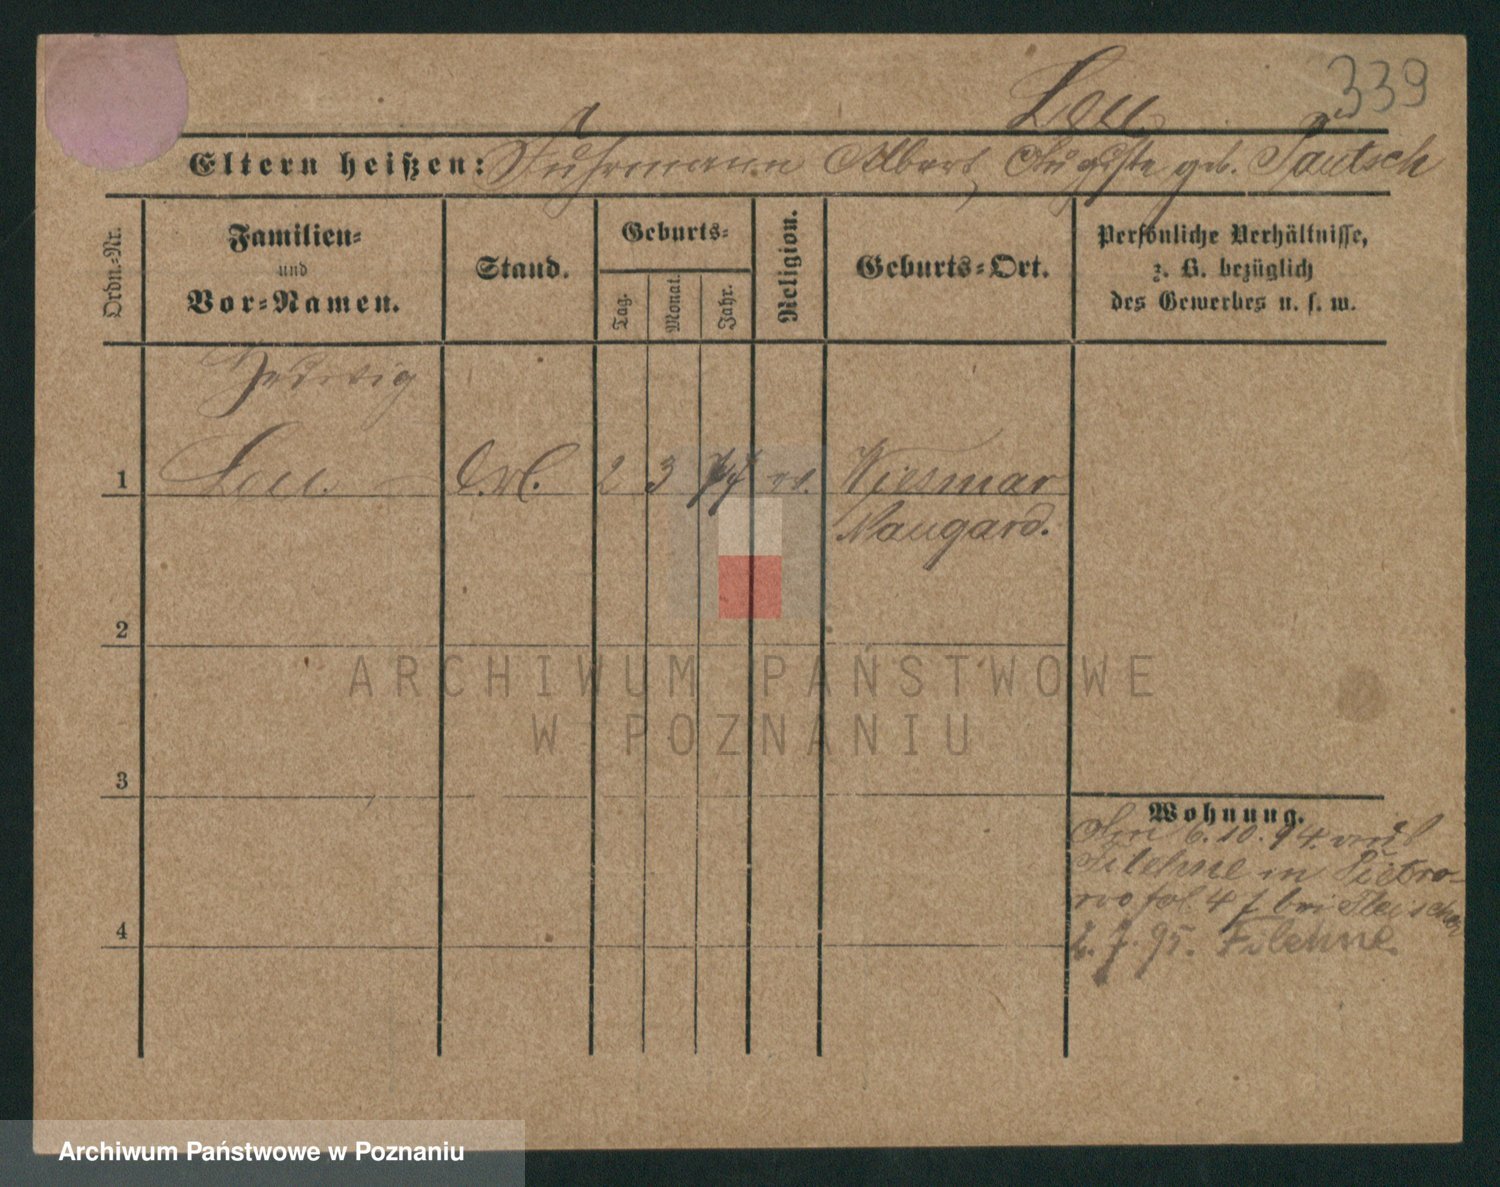 339
Leu
Eltern heißen: Fuhrmann Albert, Auguste geb. Pautsch
Ordn.-Nr.
Familien-
und
Vor-Namen.
Stand.
Geburts-
Tag.
Monat.
Jahr.
Religion.
Geburts-Ort.
Persönliche Verhältnisse,
z. B. bezüglich
des Gewerbes u. s. w.
Hedwig
1 Leu. 2 3 74 ev. Wiesmar
Naugard.
2
3
4
Wohnung.
Am 6.10.94. aus
Filehne in Pietro-
wo fol 4 f bei Fleischer
2. 7. 95. Filehne
ARCHIWUM PAŃSTWOWE
W POZNANIU
Archiwum Państwowe w Poznaniu